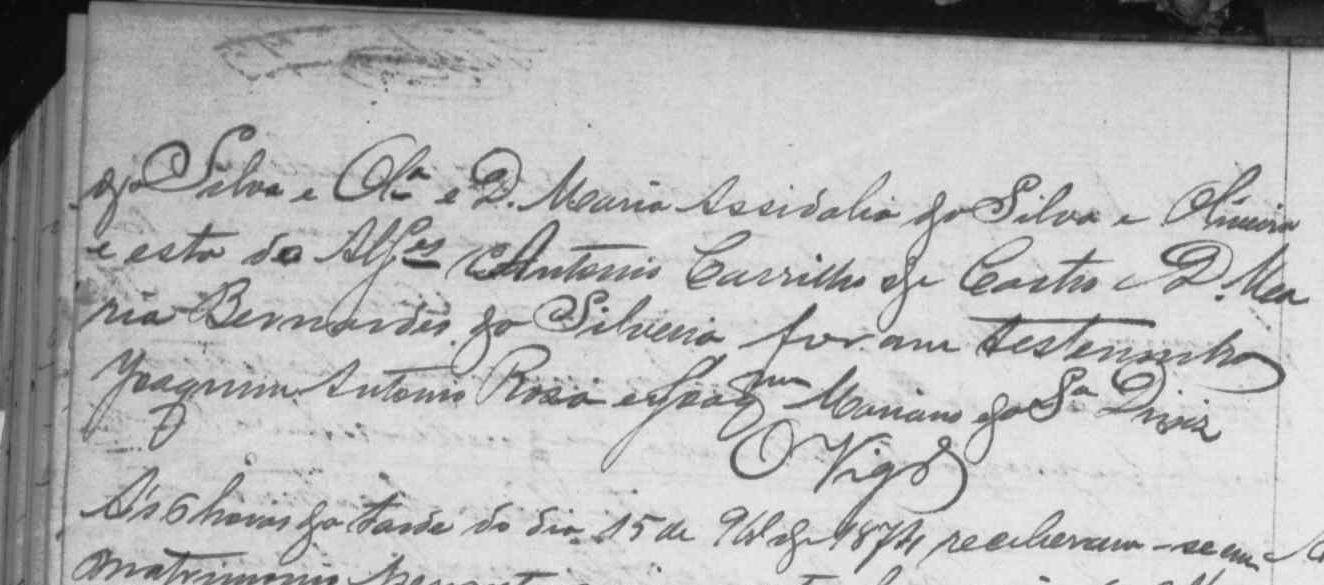 da Silva e Olª e D. Maria Assidalia da Silva e Oliveira
e esta do Alfes Antonio Carrilho de Castro e D. Ma
ria Bernardes da Silveira foram testemunhas
Joaquim Antonio Rosa e Joaqm Mariano da Sª Diniz
O Vigº
Ás 6 horas da tarde do dia 15 de 9bro de 1874 receberam-se em
matrimonio